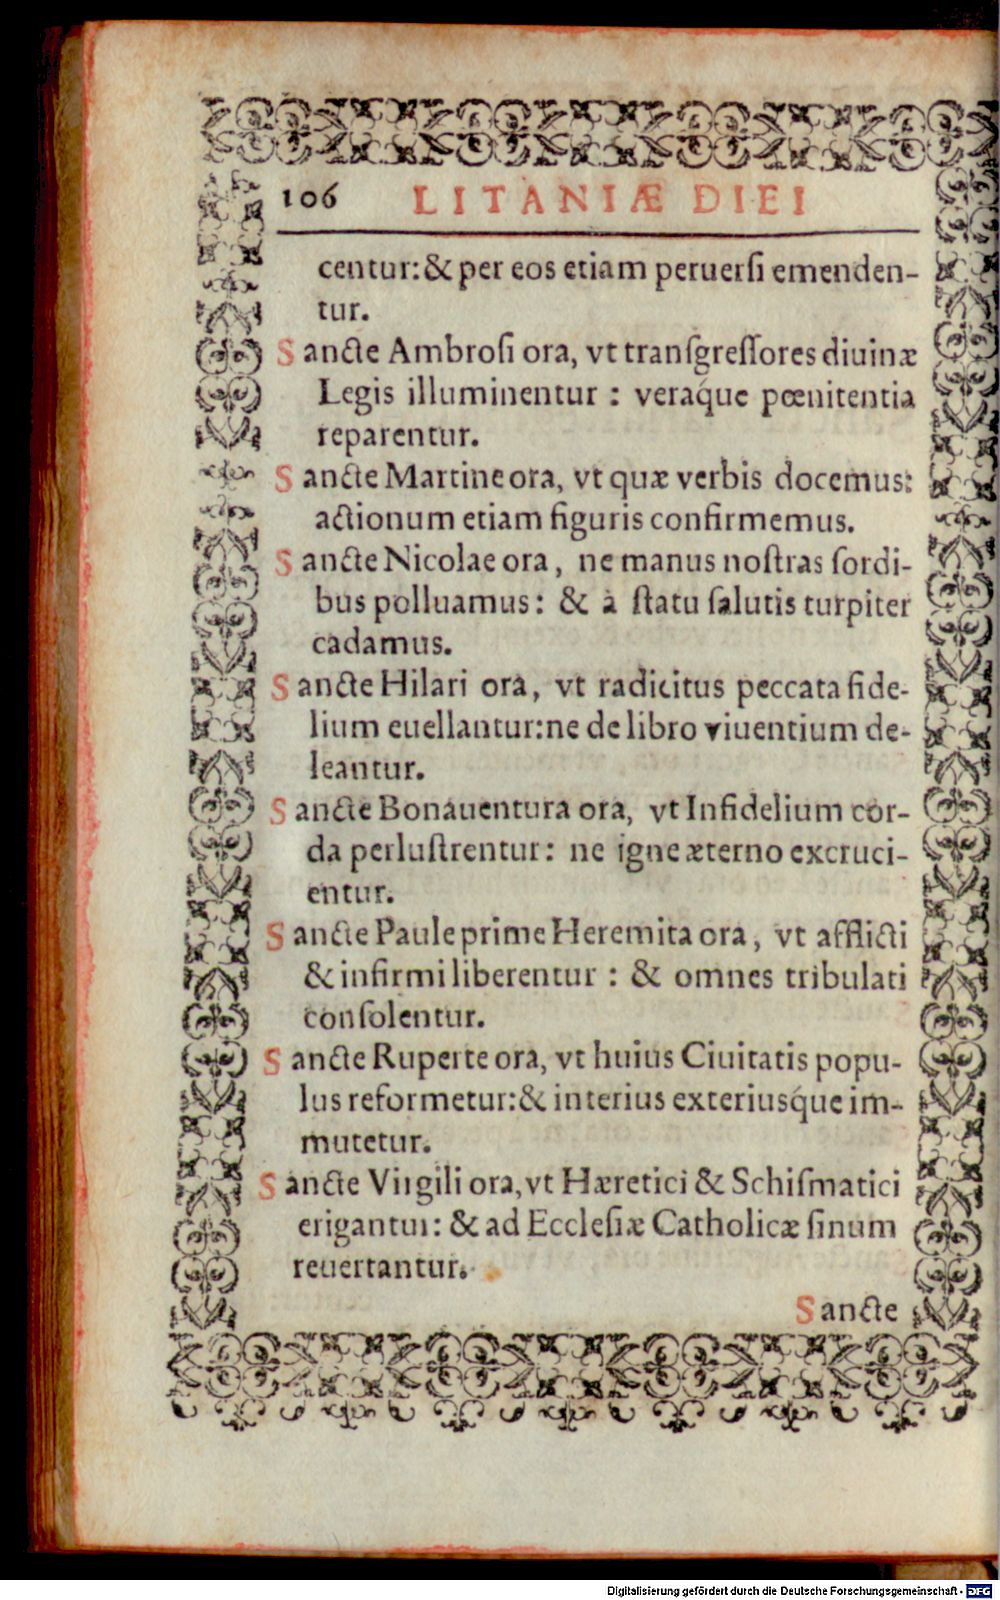 106 LITANIÆ DIEI
centur: & per eos etiam peruerſi emenden-
tur.
Sancte Ambroſi ora, vt tranſgreſſores diuinæ
Legis illuminentur : veraq́ue pœnitentia
reparentur.
Sancte Martine ora, vt quæ verbis docemus:
actionum etiam figuris confirmemus.
Sancte Nicolae ora, ne manus noſtras ſordi-
bus polluamus: & à ſtatu ſalutis turpiter
cadamus.
Sancte Hilari ora, vt radicitus peccata fide-
lium euellantur: ne de libro viuentium de-
leantur.
Sancte Bonauentura ora, vt Infidelium cor-
da perluſtrentur: ne igne æterno excruci-
entur.
Sancte Paule prime Heremita ora, vt afflicti
& infirmi liberentur : & omnes tribulati
conſolentur.
Sancte Ruperte ora, vt huius Ciuitatis popu-
lus reformetur: & interius exteriusq́ue im-
mutetur.
Sancte Virgili ora, vt Hæretici & Schiſmatici
erigantur: & ad Eccleſiæ Catholicæ ſinum
reuertantur.
Sancte
Digitalisierung gefördert durch die Deutsche Forschungsgemeinschaft - DFG